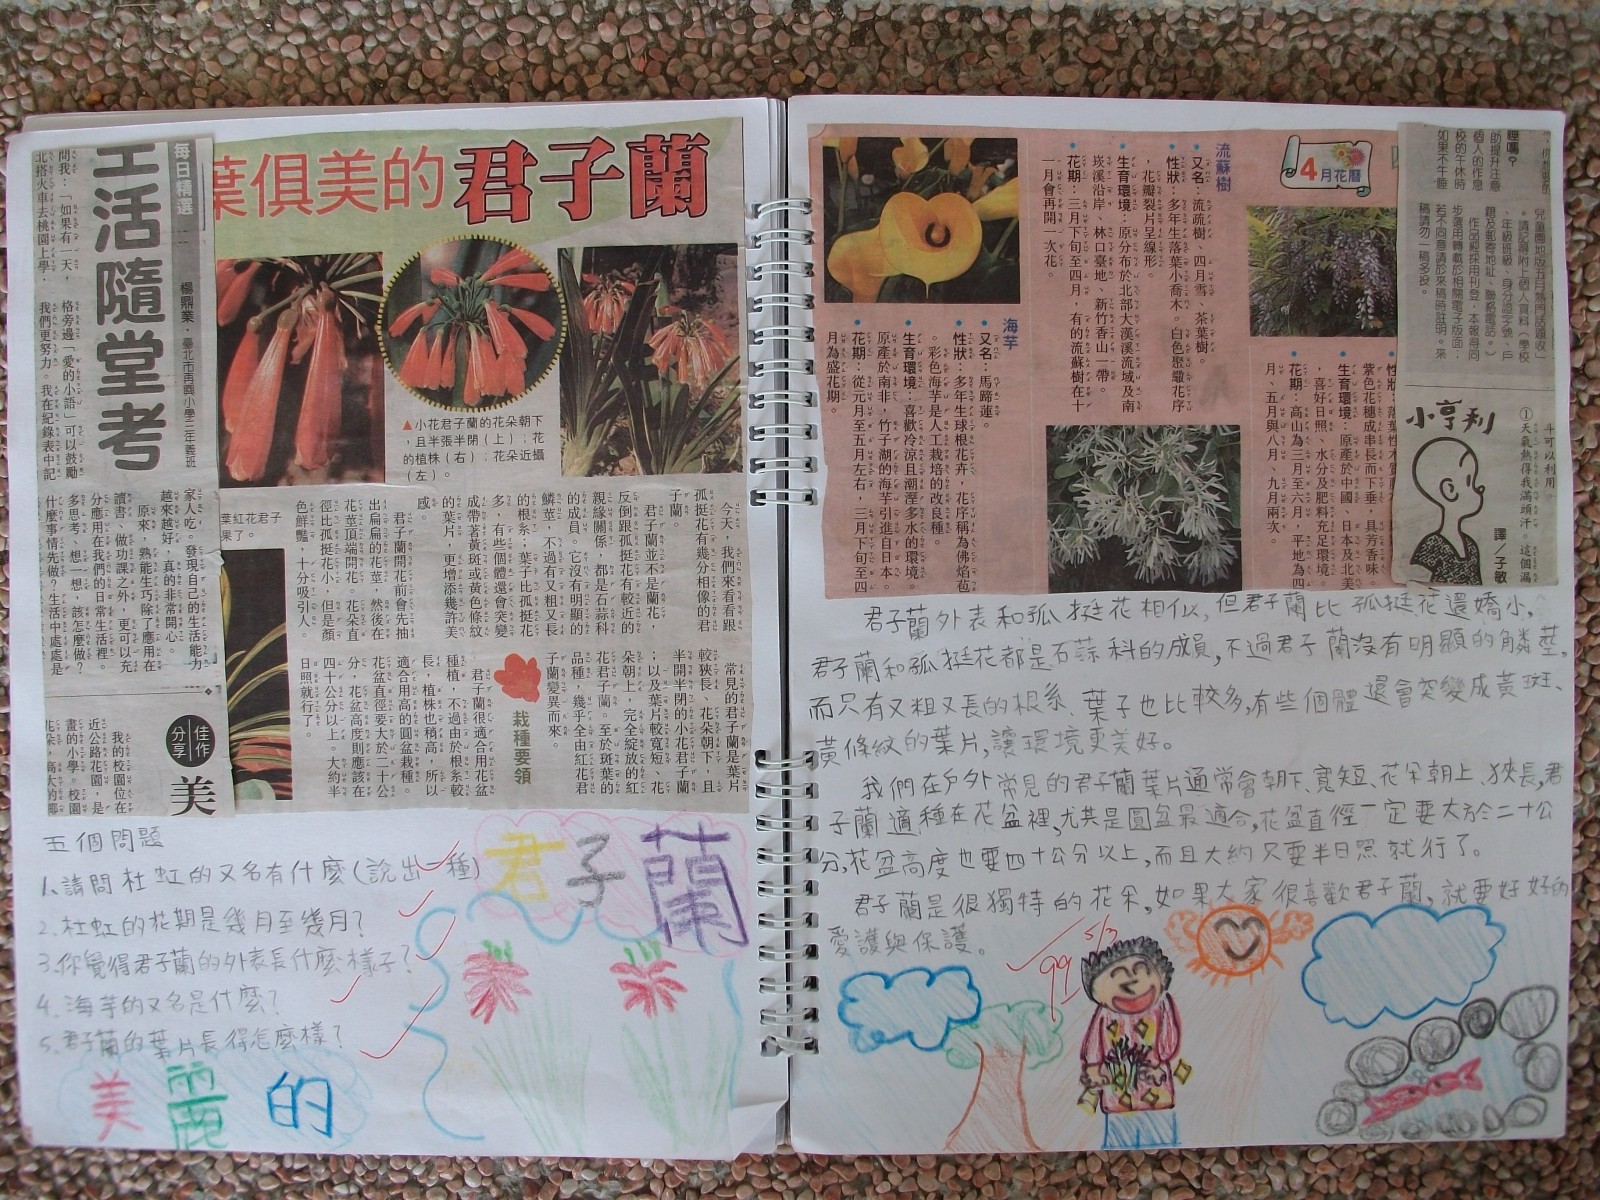 每日精選
楊鼎業．臺北市再興小學三年義班
活隨堂考
問我：「如果有一天，
北搭火車去桃園上學，
格旁邊「愛的小語」可以鼓勵
我們更努力。我在紀錄表中記
家人吃。發現自己的生活能力
越來越好，真的非常開心。
原來，熟能生巧除了應用在
讀書、做功課之外，更可以充
分應用在我們的日常生活裡。
多思考、想一想，該怎麼做？
什麼事情先做？生活中處處是
佳作分享
美
我的校園位在
近公路花園，是
畫的小學。校園
葉俱美的君子蘭
▲小花君子蘭的花朵朝下
，且半張半閉（上）；花
的植株（右）；花朵近攝
（左）。
葉紅花君子
果了。
今天，我們來看看跟
孤挺花有幾分相像的君
子蘭。
君子蘭並不是蘭花，
反倒跟孤挺花有較近的
親緣關係，都是石蒜科
的成員。它沒有明顯的
鱗莖，不過有又粗又長
的根系；葉子比孤挺花
多，有些個體還會突變
成帶著黃斑或黃色條紋
的葉片，更增添幾許美
感。
君子蘭開花前會先抽
出扁扁的花莖，然後在
花莖頂端開花。花朵直
徑比孤挺花小，但是顏
色鮮豔，十分吸引人。
常見的君子蘭是葉片
較狹長、花朵朝下，且
半開半閉的小花君子蘭
；以及葉片較寬短、花
朵朝上，完全綻放的紅
花君子蘭。至於斑葉的
品種，幾乎全由紅花君
子蘭變異而來。
栽種要領
君子蘭很適合用花盆
種植，不過由於根系較
長，植株也稍高，所以
適合用高的圓盆栽種。
花盆直徑要大於二十公
分，花盆高度則應該在
四十公分以上。大約半
日照就行了。
五個問題
1.請問杜虹的又名有什麼(說出一種)
2.杜虹的花期是幾月至幾月？
3.你覺得君子蘭的外表長什麼樣子？
4.海芋的又名是什麼？
5.君子蘭的葉片長得怎麼樣？
君子蘭
美麗的
4月花曆
流蘇樹
•又名：流疏樹、四月雪、茶葉樹。
•性狀：多年生落葉小喬木。白色聚繖花序
，花瓣裂片呈線形。
•生育環境：原分布於北部大漢溪流域及南
崁溪沿岸、林口臺地、新竹香山一帶。
•花期：三月下旬至四月，有的流蘇樹在十
一月會再開一次花。
海芋
•又名：馬蹄蓮。
•性狀：多年生球根花卉，花序稱為佛焰苞
。彩色海芋是人工栽培的改良種。
•生育環境：喜歡冷涼且潮溼多水的環境，
原產於南非，竹子湖的海芋引進自日本。
•花期：從元月至五月左右，三月下旬至四
月為盛花期。
紫色花穗成串長而下垂，具芳香味。
•生育環境：原產於中國、日本及北美
，喜好日照、水分及肥料充足環境。
•花期：高山為三月至六月，平地為四
月、五月與八月、九月兩次。
助提升注意
個人的作息
校的午休時
如果不午睡
稿請勿一稿多投。
小亨利
譯／子敏
斗可以利用。
①天氣熱得我滿頭汗。這個漏
君子蘭外表和孤挺花相似，但君子蘭比孤挺花還嬌小，
君子蘭和孤挺花都是石蒜科的成員，不過君子蘭沒有明顯的鱗莖，
而只有又粗又長的根系、葉子也比較多，有些個體還會突變成黃斑、
黃條紋的葉片，讓環境更美好。
我們在戶外常見的君子蘭葉片通常會朝下、寬短、花朵朝上、狹長，君
子蘭適種在花盆裡，尤其是圓盆最適合，花盆直徑一定要大於二十公
分，花盆高度也要四十公分以上，而且大約只要半日照就行了。
君子蘭是很獨特的花朵，如果大家很喜歡君子蘭，就要好好的
愛護與保護。
5/3
99